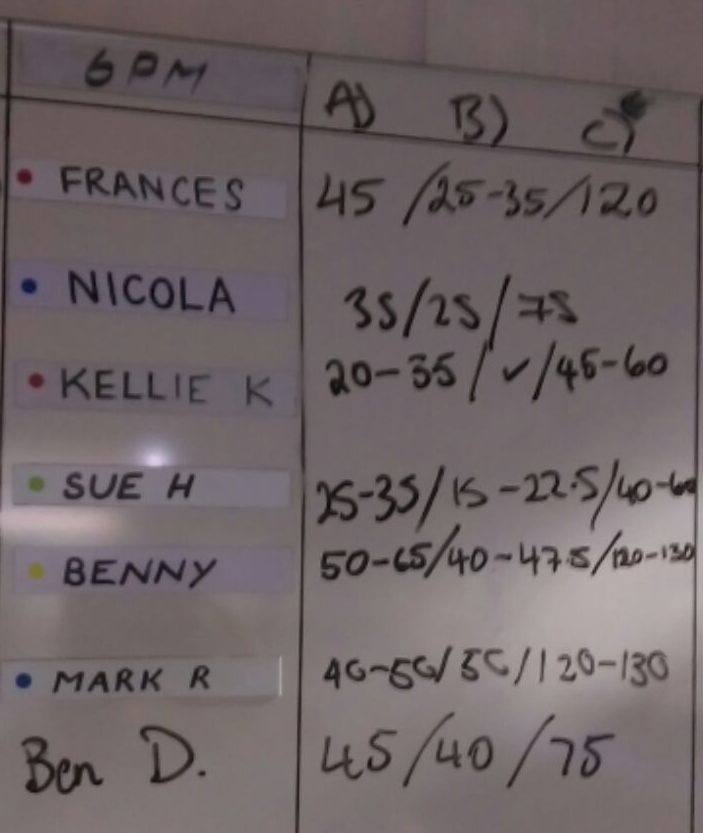 6PM A) B) C)
FRANCES 45 /25-35/120
NICOLA 35/25/75
KELLIE K 20-35/✓/45-60
SUE H 25-35/15-22.5/40-60
BENNY 50-65/40-47.5/120-130
MARK R 40-50/50/120-130
Ben D. 45/40/75